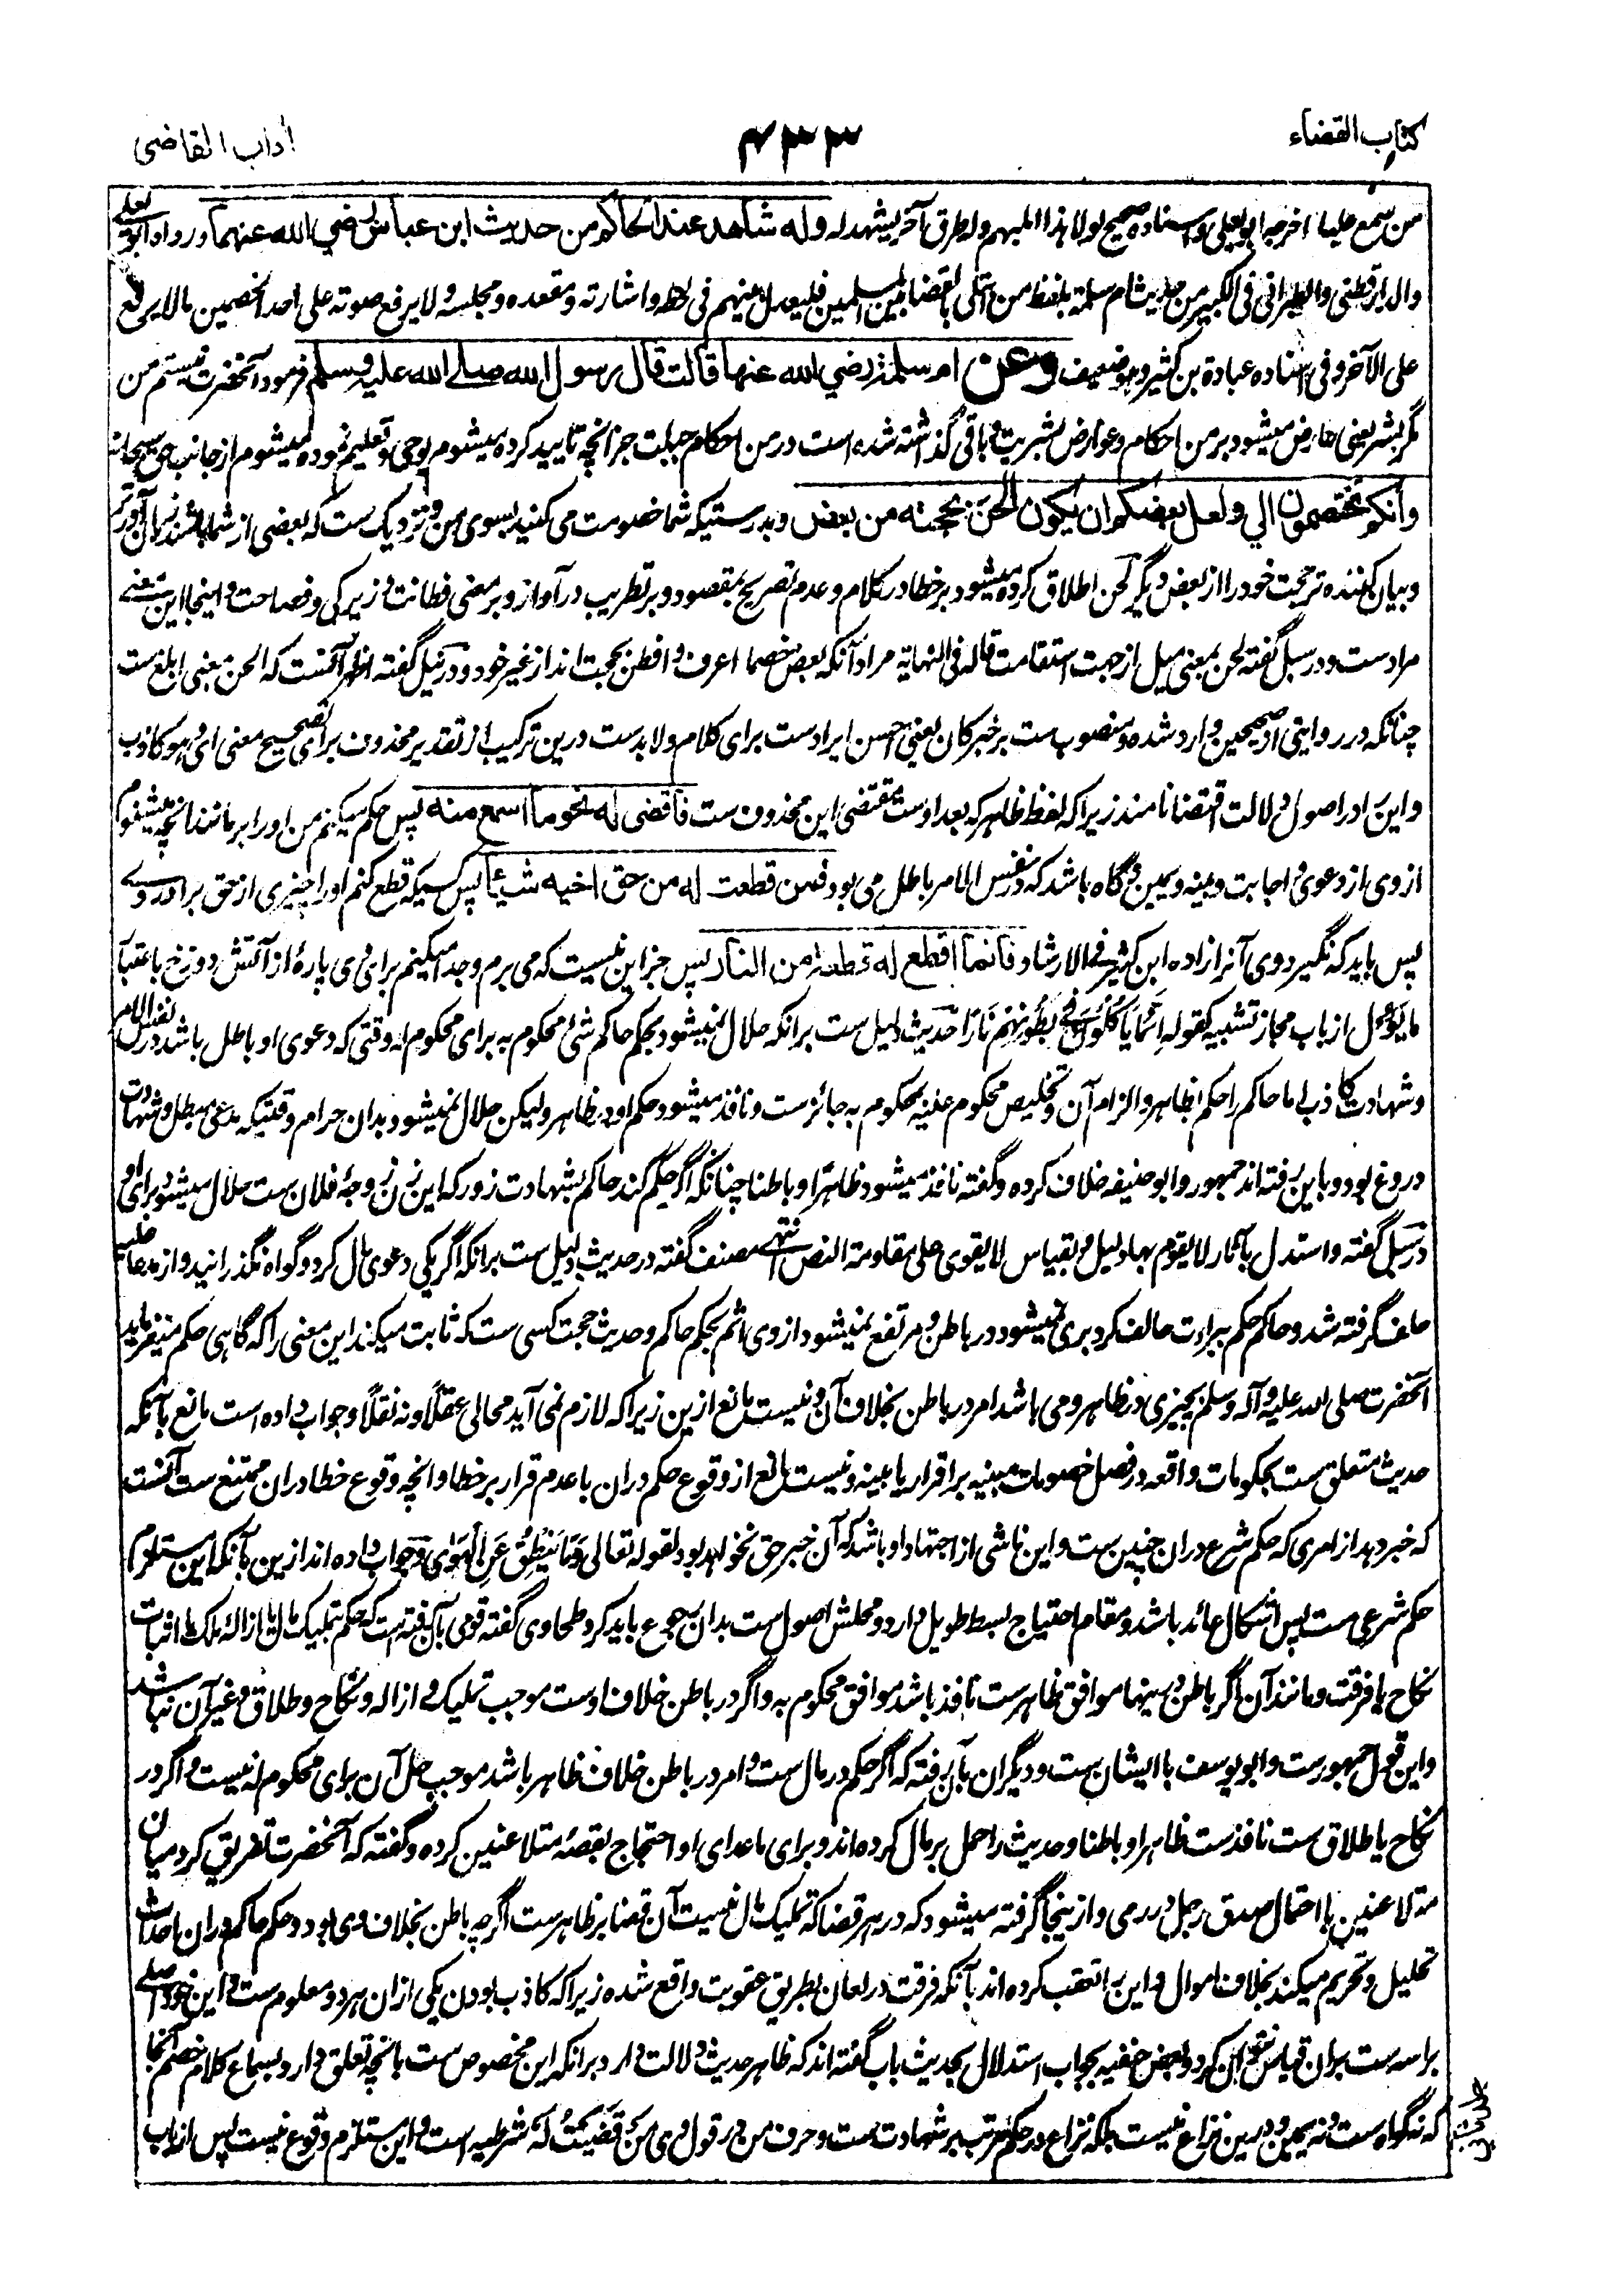 کتاب القضاء
۴۳۳
آداب القاضی
من سمع علیا اخرجه ابو یعلی و اسناده صحیح لولا هذا المبهم وله طرق آخر یشهد له وله شاهد عند الحاکم من حدیث ابن عباس رضي الله عنهما ورواه ابو یعلی
والدارقطنی والطبرانی فی الکبیر من حدیث ام سلمة بلفظ من ابتلی بالقضاء بین المسلمین فلیعدل بینهم فی لحظه و اشارته و مقعده و مجلسه و لا یرفع صوته علی احد الخصمین ما لا یرفع
علی الآخر و فی اسناده عبادة بن کثیر و هو ضعیف وعن ام سلمة رضي الله عنها قالت قال رسول الله صلے الله علیه وسلم فرمود آنحضرت نیستم من
مگر بشر یعنی عارض میشود بر من احکام و عوارض بشریت و باقی گذاشته شده است در من احکام جبلت جز آنچه تایید کرده میشوم بوحی و تعلیم نموده میشوم از جانب حق سبحانه
وانکم تختصمون الي ولعل بعضکم ان یکون الحن بحجته من بعض و بدرستیکه شما خصومت می کنید بسوی من و نزدیک ست که بعضی از شما باشند زبان آورتر
و بیان کننده تر حجت خود را از بعض دیگر لحن اطلاق کرده میشود بر خطا در کلام و عدم تصریح بمقصود و بر تطریب در آواز و بر معنی فطانت و زیرکی و فصاحت و اینجا این معنے
مرادست و در سبل گفته لحن بمعنی میل از جهت استقامت قاله فی النهایة مراد آنکه بعض خصما اعرف و افطن بحجت اند از غیر خود و در نیل گفته اظهر آنست که الحن بمعنی ابلغ ست
چنانکه در روایتی از صحیحین وارد شده و منصوب ست بر خبر کان یعنی احسن ایراد ست برای کلام و لا بدست درین ترکیب از تقدیر محذوف برای تصحیح معنی ای و هو کاذب
و این را در اصول دلالت اقتضا نامند زیرا که لفظ ظاهر که بعد اوست مقتضی این محذوف ست فاقضی له نحو ما اسمع منه پس حکم میکنم من او را بر مانند آنچه میشنوم
از وی از دعوی و اجابت و بینه و یمین و گاه باشد که در نفس الامر باطل می بود فمن قطعت له من حق اخیه شیئا پس کسیکه قطع کنم او را چیزی از حق برادر وے
پس باید که نگیرد وی آنرا زاده ابن کثیر فی الارشاد فانما اقطع له قطعة من النار پس جز این نیست که می برم و جدا میکنم برای وی پاره از آتش دوزخ باعتبار
ما یؤل از باب مجاز تشبیه کقوله إنما یأکلون فی بطونهم نارا حدیث دلیل ست بر آنکه حلال نمیشود بحکم حاکم شئ محکوم به برای محکوم له وقتی که دعوی او باطل باشد در نفس الامر
و شهادت کاذب اما حاکم را حکم بظاهر و الزام آن و تخلیص محکوم علیه بمحکوم به جائزست و نافذ میشود حکم او در ظاهر و لیکن حلال نمیشود بدان حرام وقتیکه مدعی مبطل و شهادت
دروغ بود و باین رفته اند جمهور و ابو حنیفه خلاف کرده و گفته نافذ میشود ظاهرا و باطنا چنانکه اگر حکم کند حاکم بشهادت زور که این زن زوجۀ فلان ست حلال میشود برای او
در سبل گفته و استدل بآثار لا یقوم بها دلیل و بقیاس لا یقوی علی مقاومة النص انتهے مصنف گفته در حدیث دلیل ست بر آنکه اگر یکی دعوی مال کرد و گواه نگذرانید و از مدعا علیه
حلف گرفته شد و حاکم حکم ببراءت حالف کرد بری نمیشود در باطن و مرتفع نمیشود از وی اثم بحکم حاکم و حدیث حجت کسی ست که ثابت میکند این معنی را که گاهی حکم میفرماید
آنحضرت صلی الله علیه و آله وسلم بچیزی در ظاهر و می باشد امر در باطن بخلاف آن و نیست مانع ازین زیرا که لازم نمی آید محالی عقلاً و نه نقلاً و جواب داده است مانع بآنکه
حدیث متعلق ست بحکومات واقعه در فصل خصومات مبنیه بر اقرار یا بینه و نیست مانع از وقوع حکم دران با عدم قرار بر خطا و آنچه وقوع خطا دران ممتنع ست آنست
که خبر دهد از امری که حکم شرع دران چنین ست و این ناشی از اجتهاد او باشد که آن خبر حق نخواهد بود لقوله تعالی وما ینطق عن الهوی و جواب داده اند ازین بآنکه این مستلزم
حکم شرعی ست پس اشکال عائد باشد و مقام احتیاج ببسط طویل دارد و محلش اصول ست بدان رجوع باید کرد طحاوی گفته قومی بآن رفته است که حکم بتملیک مال یا ازالۀ ملک یا اثبات
نکاح یا فرقت و مانند آن اگر باطن و بینها موافق ظاهرست نافذ باشد موافق محکوم به و اگر در باطن خلاف اوست موجب تملیک و ازاله و نکاح و طلاق و غیر آن نباشد
و این قول جمهورست و ابو یوسف با ایشان ست و دیگران بآن رفته که اگر حکم در مال ست و امر در باطن خلاف ظاهر باشد موجب حل آن برای محکوم له نیست و اگر در
نکاح یا طلاق ست نافذست ظاهرا و باطنا و حدیث را حمل بر مال کرده اند و برای ما عدای او احتجاج بقصۀ متلاعنین کرده و گفته که آنحضرت تفریق کرد میان
متلاعنین با احتمال صدق رجل در رمی و ازینجا گرفته میشود که در هر قضا که تملیک مال نیست آن قضا بر ظاهرست اگرچه باطن بخلاف وی بود و حکم حاکم دران احداث
تحلیل و تحریم میکند بخلاف اموال و این را تعقب کرده اند بآنکه فرقت در لعان بطریق عقوبت واقع شده زیرا که کاذب بودن یکی ازان هر دو معلوم ست و این خود اصلے
براسه ست بران قیاس نتوان کرد و بعض حنفیه بجواب استدلال بحدیث باب گفته اند که ظاهر حدیث دلالت دارد بر آنکه این مخصوص ست بآنچه تعلق دارد بسماع کلام خصم آنجا
که نه گواه ست و نه یمین و درین نزاع نیست بلکه نزاع در حکم مرتب بر شهادت ست و حرف من در قول وی من قضیت له شرطیه است و این مستلزم وقوع نیست پس از باب